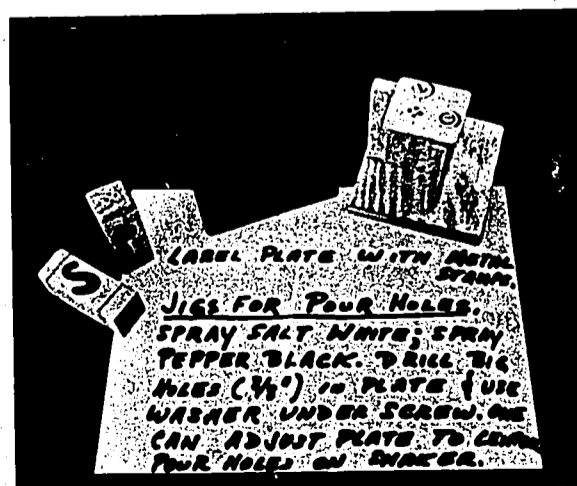 S
LABEL PLATE WITH METAL
STAMP.
JIGS FOR POUR HOLES.
SPRAY SALT WHITE; SPRAY
PEPPER BLACK. DRILL BIG
HOLES (3/8") IN PLATE & USE
WASHER UNDER SCREW. ONE
CAN ADJUST PLATE TO CENTER
POUR HOLES ON SHAKER.